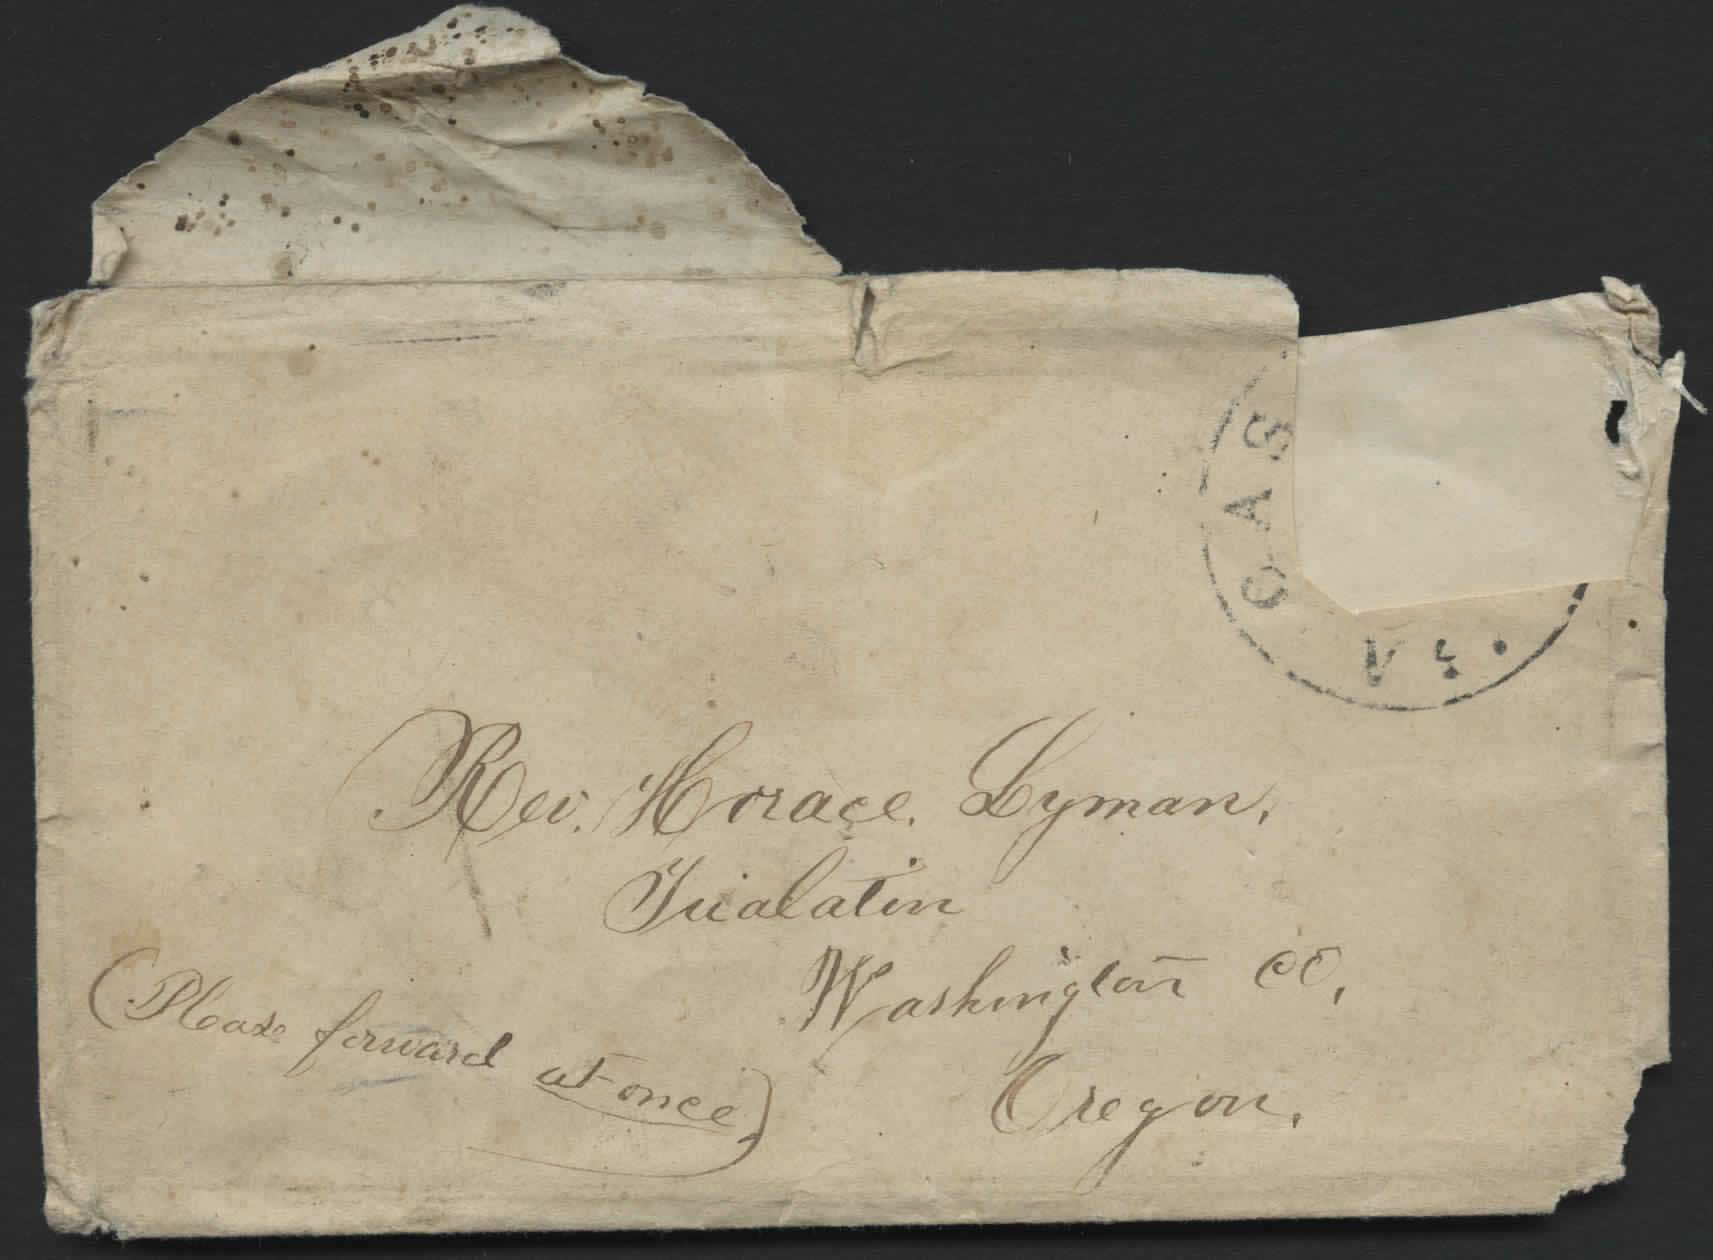 CAS
Rev. Horace. Lyman,
Tualatin
Washington CO,
Oregon.
(Please forward at once)